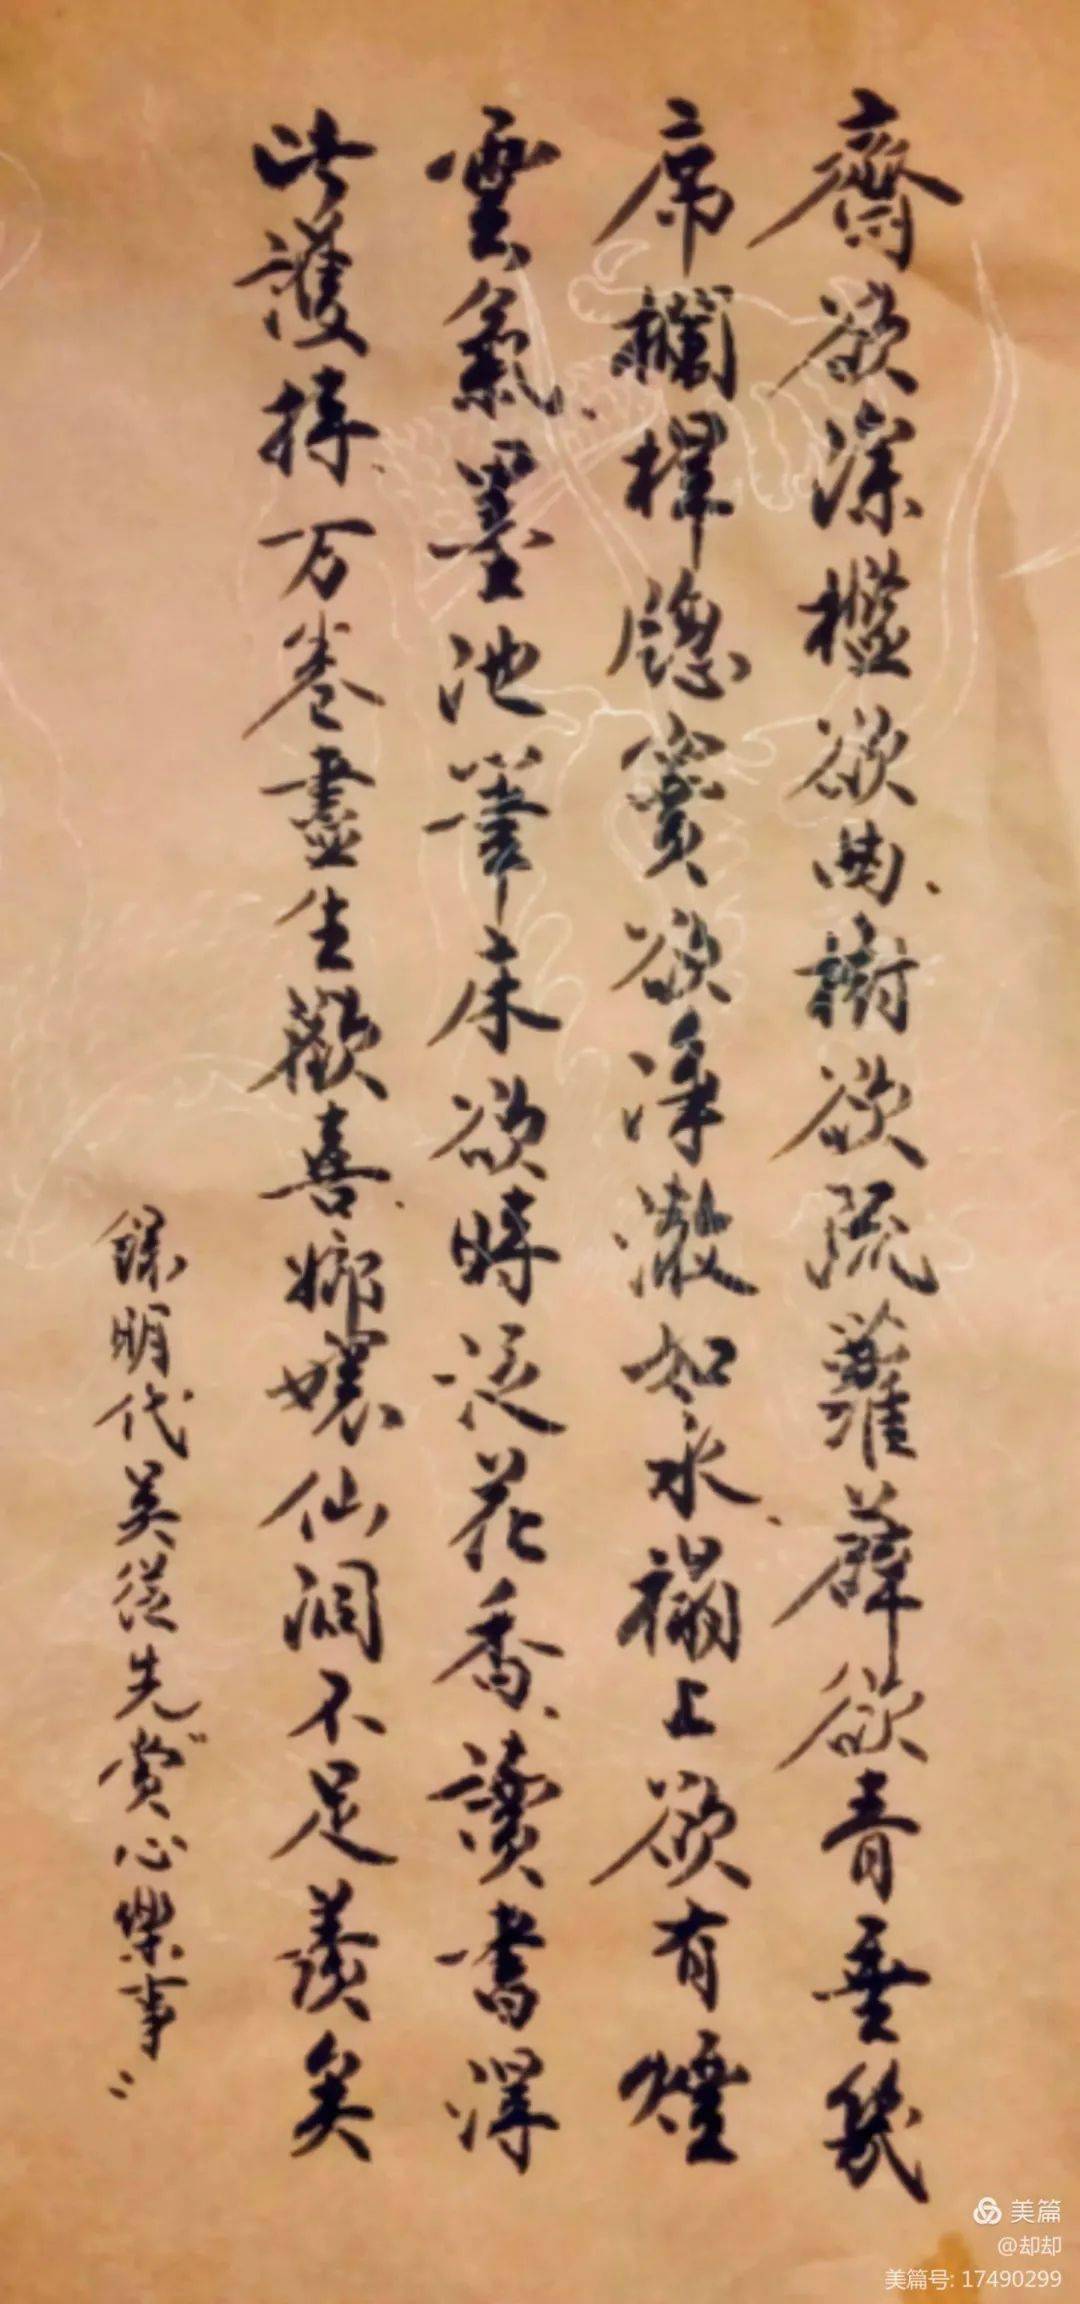 齋欲深檻欲曲樹欲疏蘿薜欲青垂幾
席欄桿窗竇欲淨澈如水榻上欲有煙
雲氣墨池筆床欲時泛花香讀書得
此護持万卷盡生歡喜嫏嬛仙洞不足羨矣
錄明代吴從先賞心樂事"
美篇
@却却
美篇号: 17490299